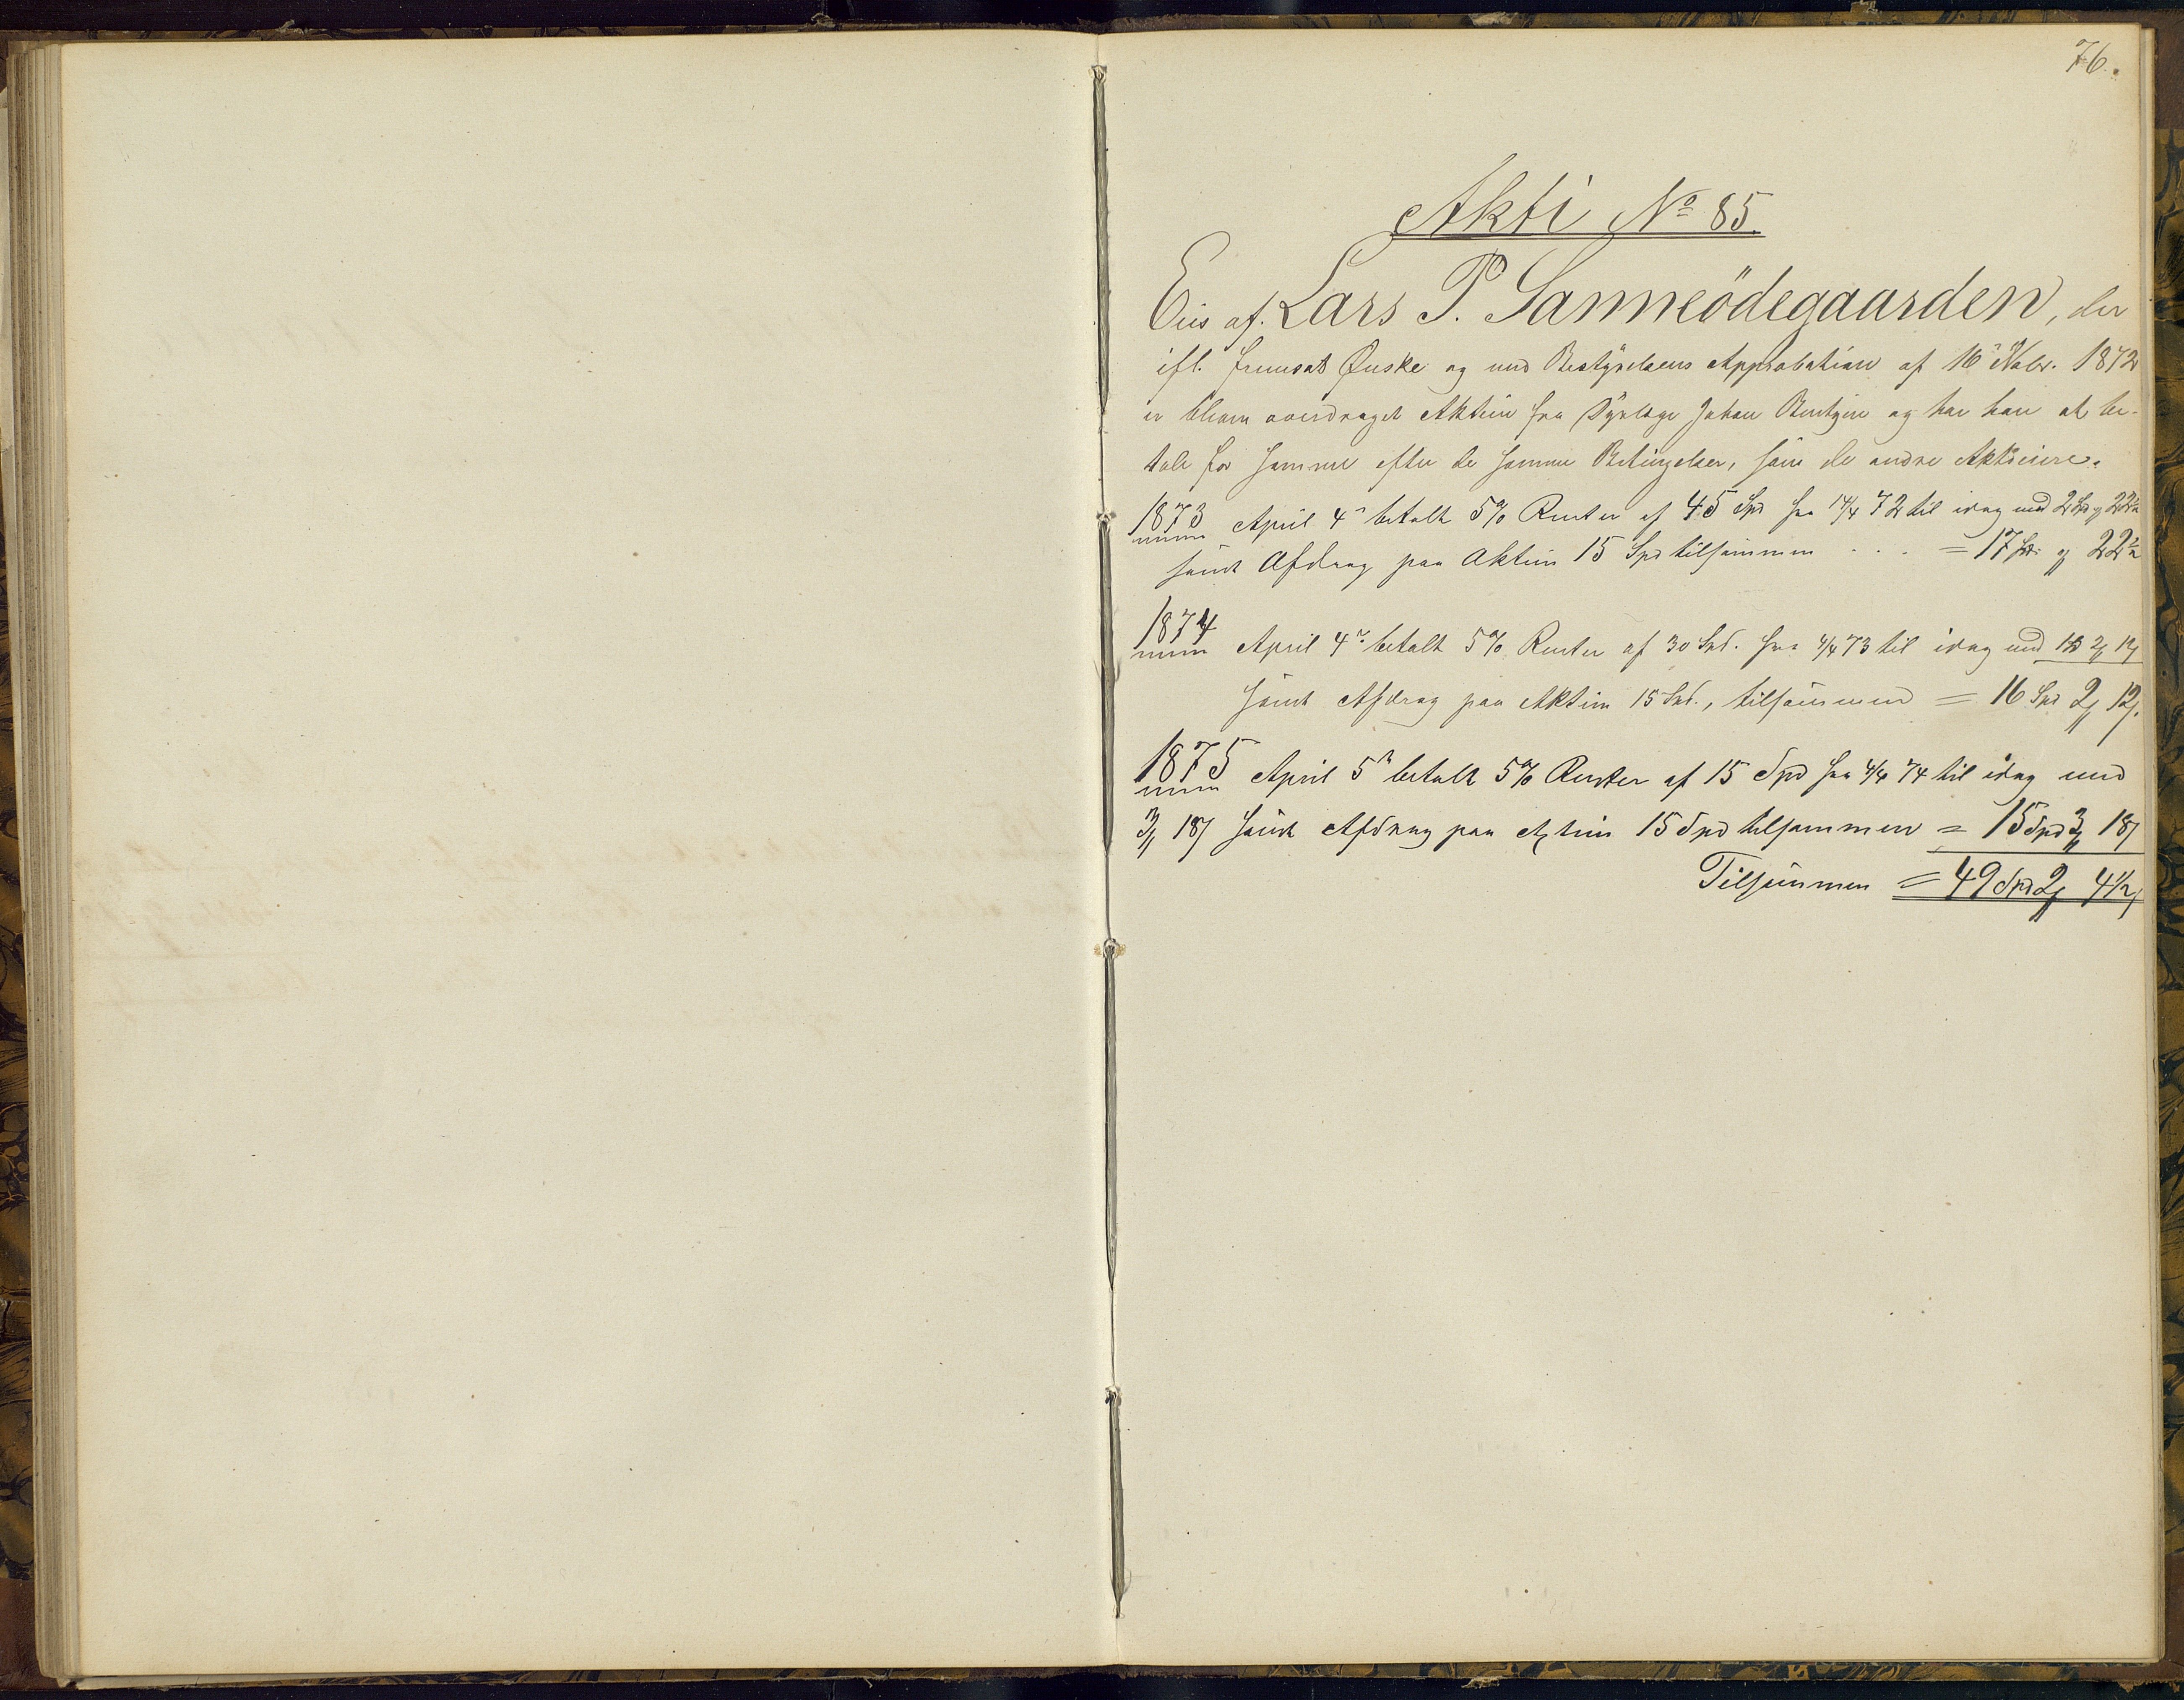 76.
Akti No 85.
Eies af Lars P. Sanneödegaarden, der
ifl. fremsat Ønske og med Bestÿrelsens Approbation af 16de Novbr. 1872
er bleven overdraget Aktien fra Johan og har han at be-
tale for samme efter de samme Betingelser, som de andre Aktieeiere.
1873 April 4de betalt 5% Renter af 45 Spd fra 14/4 72 til idag med 2 Spd og 22½
samt Afdrag paa Aktien 15 Spd tilsammen . . . = 17 Spd og 22½
1874 April 4de betalt 5% Renter af 30 Spd. fra 4/4 73 til idag med 1 Spd 2 12
samt Afdrag paa Aktien 15 Spd., tilsammen = 16 Spd 2 12.
1875 April 5te betalt 5% Renter af 15 Spd fra 4/4 74 til idag med
3 18 samt Afdrag paa Aktien 15 Spd tilsammen = 15 Spd 3 18
Tilsammen = 49 Spd 2 4½